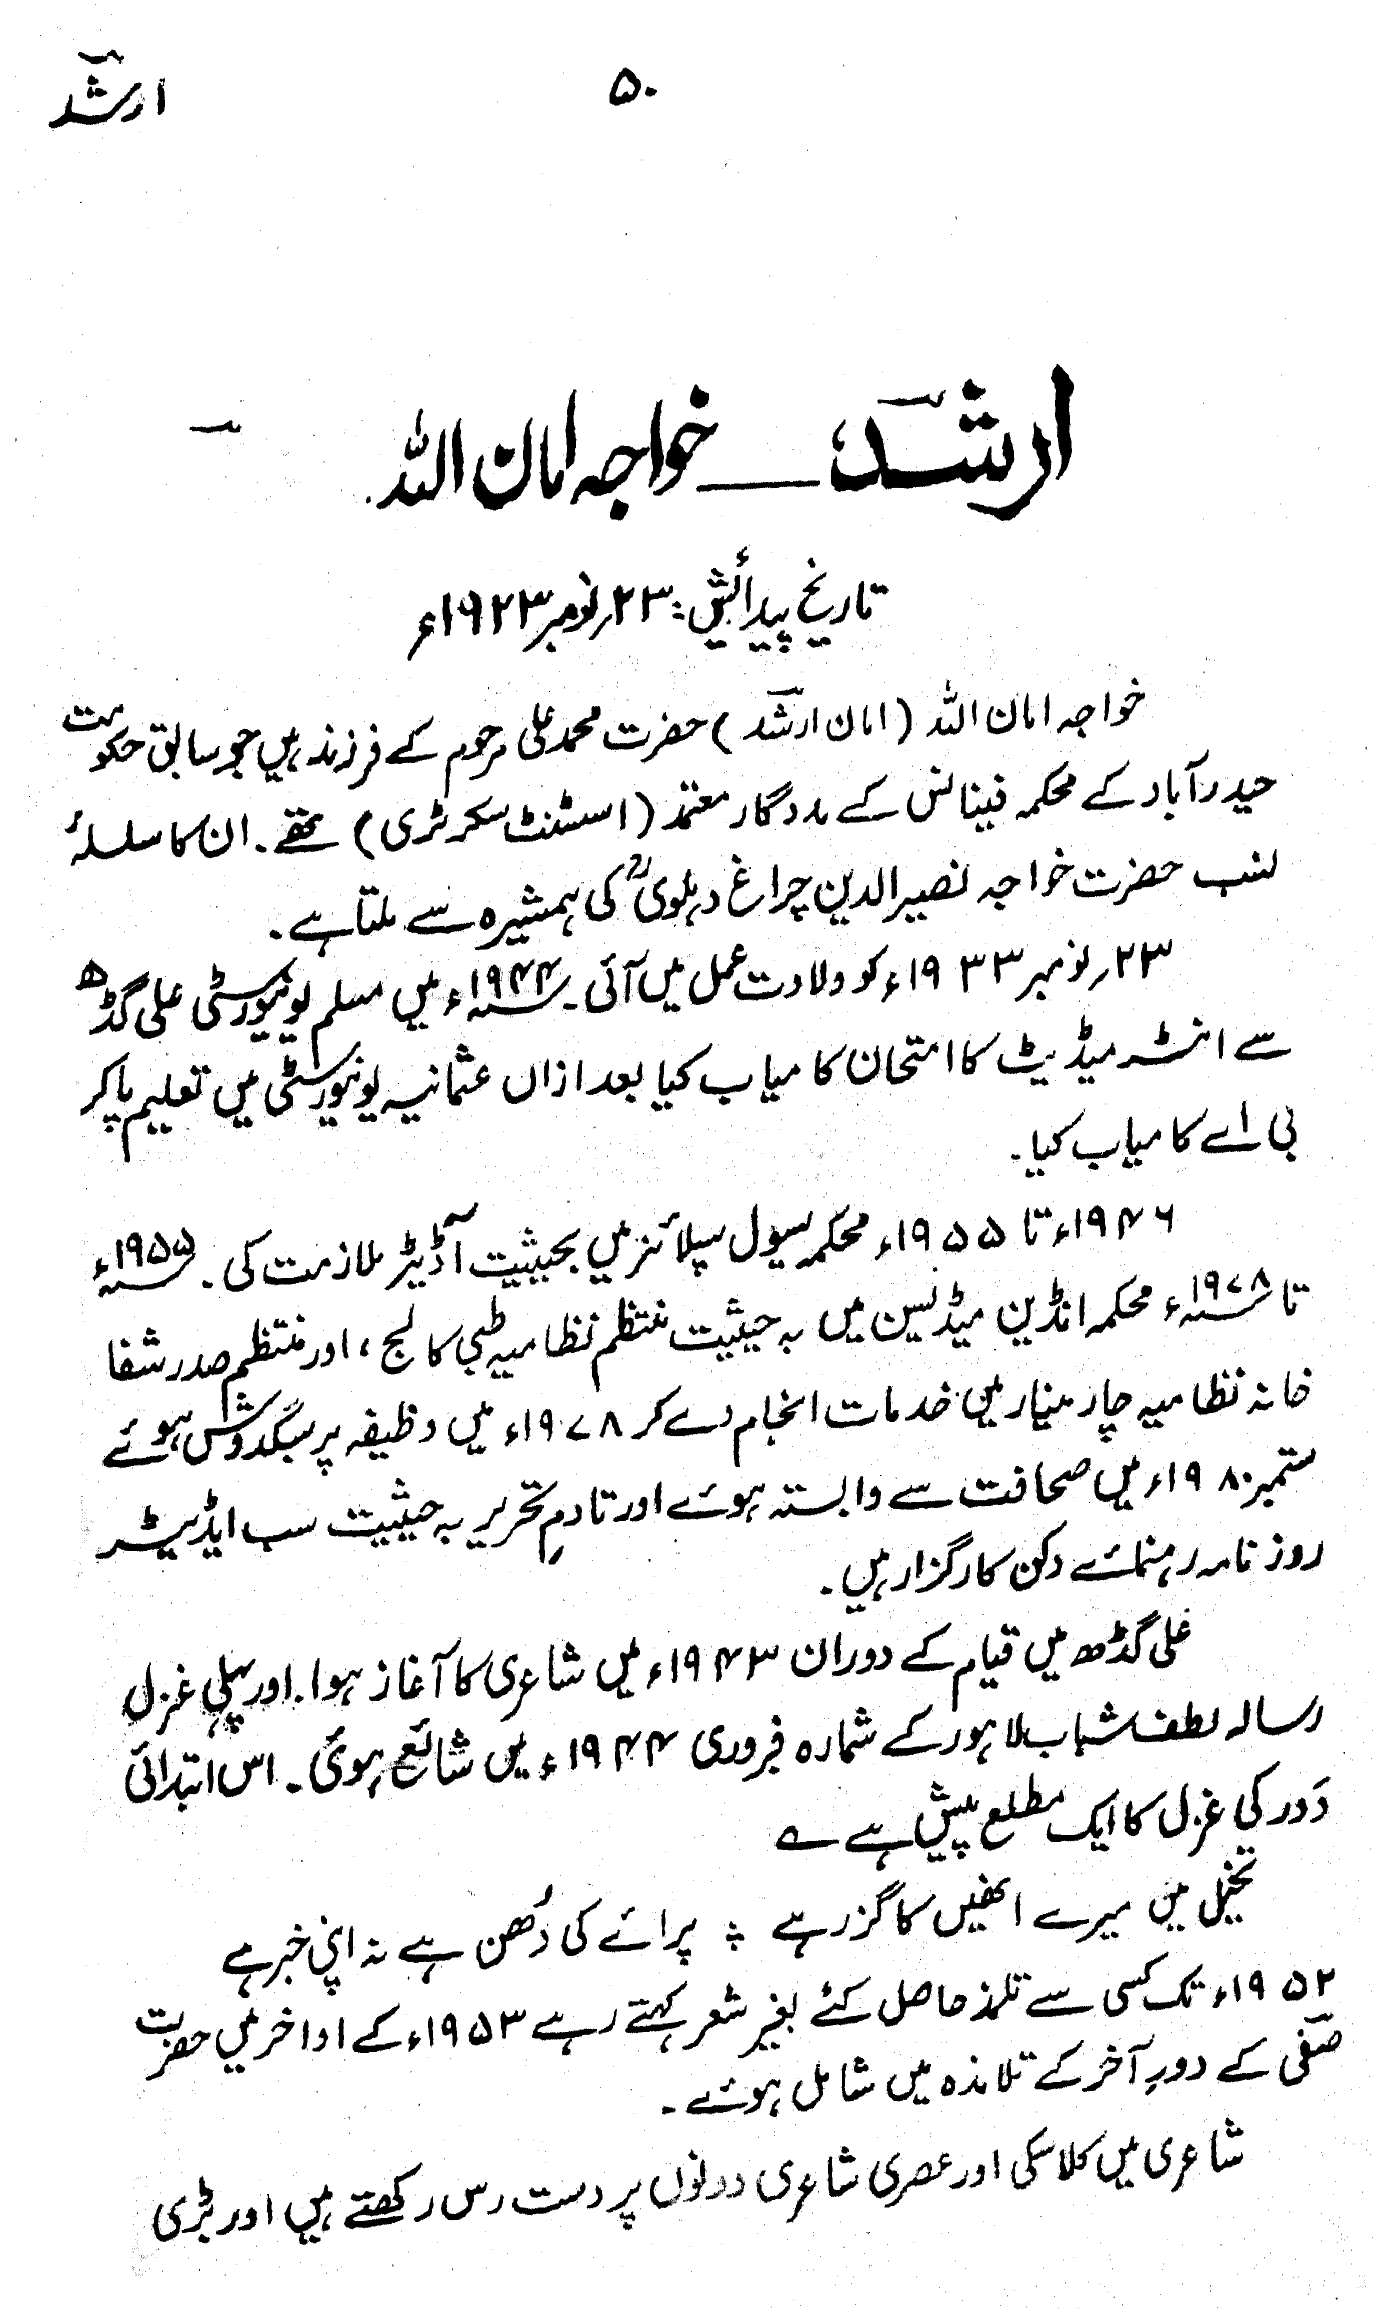 ۵۰
ارشد
ارشد، خواجہ امان اللہ
تاریخ پیدائش: ۲۳؍نومبر ۱۹۲۳ء
خواجہ امان اللہ (امان ارشد) حضرت محمد علی مرحوم کے فرزند ہیں جو سابق حکومت
حیدرآباد کے محکمہ فینانس کے مددگار معتمد (اسسٹنٹ سکرٹری) تھے۔ ان کا سلسلۂ
نسب حضرت خواجہ نصیرالدین چراغ دہلویؒ کی ہمشیرہ سے ملتا ہے۔
۲۳؍نومبر ۱۹۳۳ء کو ولادت عمل میں آئی۔ ۱۹۴۴ء میں مسلم یونیورسٹی علی گڈھ
سے انٹرمیڈیٹ کا امتحان کامیاب کیا بعد ازاں عثمانیہ یونیورسٹی میں تعلیم پاکر
بی اے کامیاب کیا۔
۱۹۴۶ء تا ۱۹۵۵ء محکمہ سیول سپلائز میں بحیثیت آڈیٹر ملازمت کی۔ ۱۹۵۵ء
تا ۱۹۷۸ء محکمہ انڈین میڈیسن میں بہ حیثیت منتظم نظامیہ طبی کالج، اور منتظم صدر شفا
خانہ نظامیہ چار مینار میں خدمات انجام دے کر ۱۹۷۸ء میں وظیفہ پر سبکدوش ہوئے
ستمبر ۱۹۸۰ء میں صحافت سے وابستہ ہوئے اور تادمِ تحریر بہ حیثیت سب ایڈیٹر
روزنامہ رہنمائے دکن کارگزار ہیں۔
علی گڈھ میں قیام کے دوران ۱۹۴۳ء میں شاعری کا آغاز ہوا۔ اور پہلی غزل
رسالہ لطف شباب لاہور کے شمارہ فروری ۱۹۴۴ء میں شائع ہوئی۔ اس ابتدائی
دَور کی غزل کا ایک مطلع پیش ہے ؎
تخیل میں میرے انھیں کا گزر ہے ؛ پرائے کی دُھن ہے نہ اپنی خبر ہے
۱۹۵۲ء تک کسی سے تلمذ حاصل کئے بغیر شعر کہتے رہے ۱۹۵۳ء کے اواخر میں حضرت
صفی کے دورِ آخر کے تلامذہ میں شامل ہوئے۔
شاعری میں کلاسکی اور عصری شاعری دونوں پر دست رس رکھتے ہیں اور بڑی